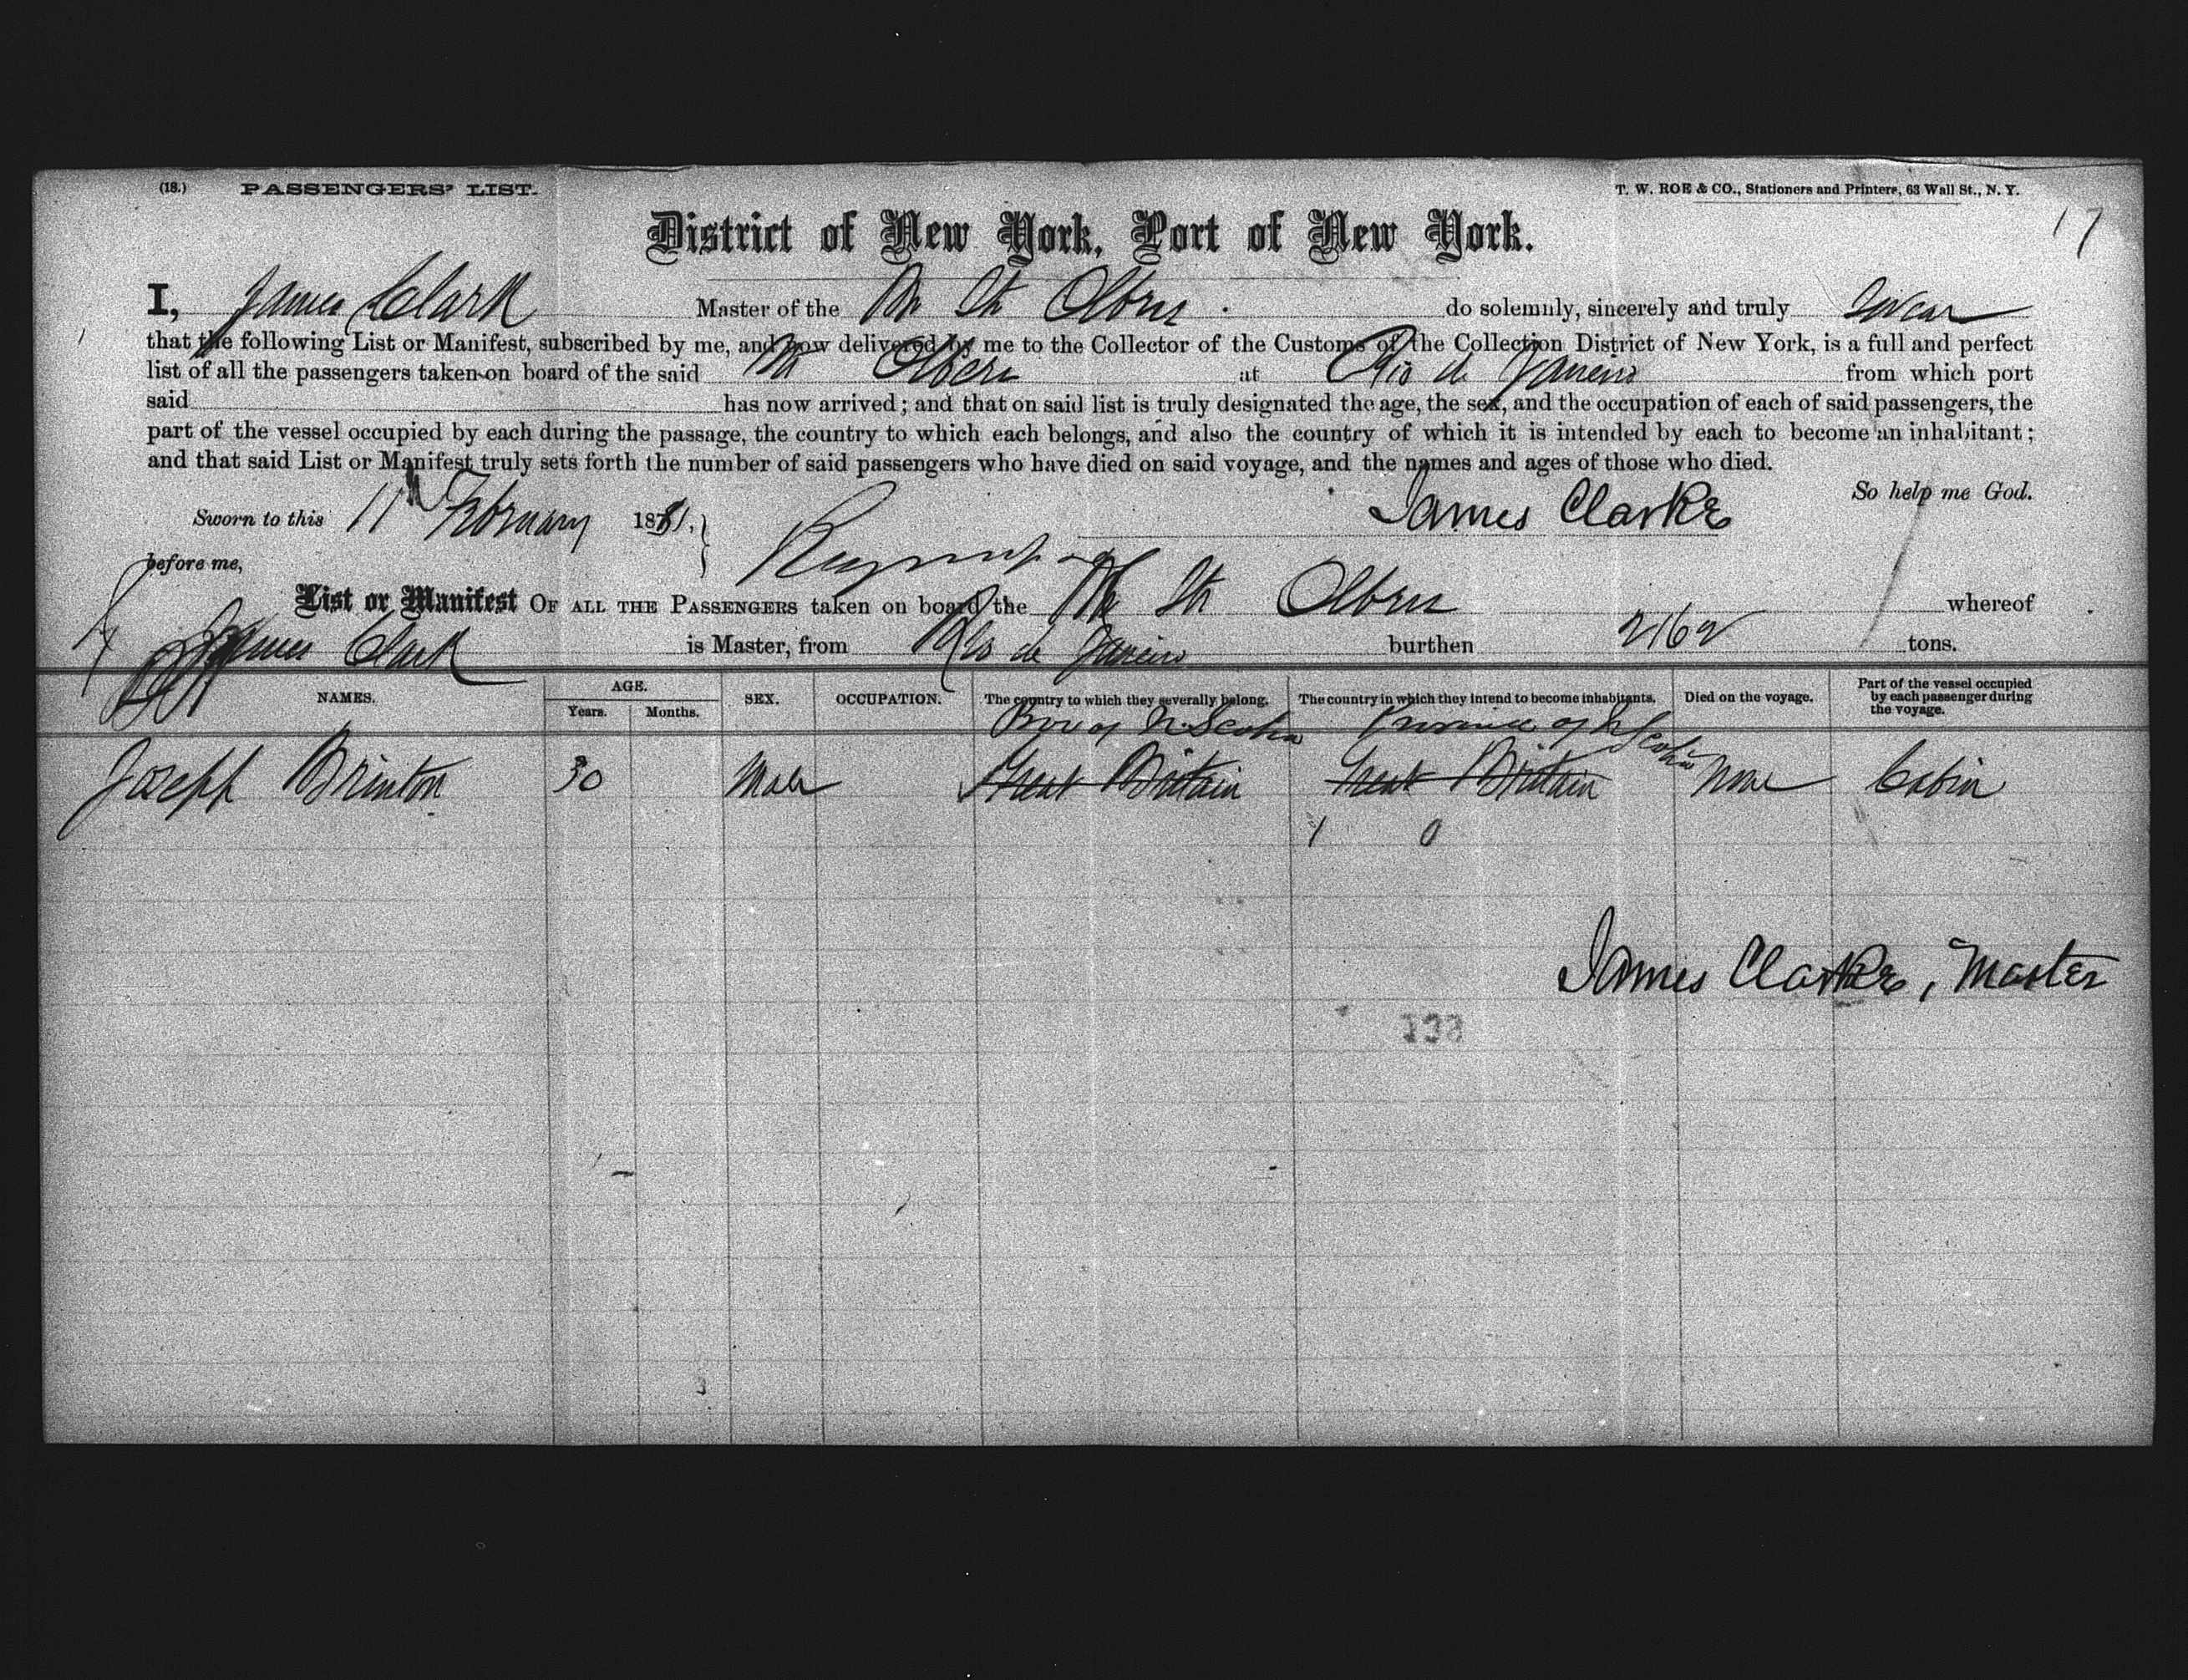 (18.) PASSENGERS' LIST. T. W. ROE & CO., Stationers and Printers, 63 Wall St., N. Y.
17
District of New York, Port of New York.
I, James Clark Master of the Br Str Olbers do solemnly, sincerely and truly swear
that the following List or Manifest, subscribed by me, and now delivered by me to the Collector of the Customs of the Collection District of New York, is a full and perfect
list of all the passengers taken on board of the said Olbers at Rio de Janeiro from which port
said has now arrived; and that on said list is truly designated the age, the sex, and the occupation of each of said passengers, the
part of the vessel occupied by each during the passage, the country to which each belongs, and also the country of which it is intended by each to become an inhabitant;
and that said List or Manifest truly sets forth the number of said passengers who have died on said voyage, and the names and ages of those who died.
So help me God.
Sworn to this 11th February 1881, James Clarke
before me,
List or Manifest OF ALL THE PASSENGERS taken on board the Str Olbers whereof
James Clark is Master, from Rio de Janeiro burthen 2162 tons.
NAMES. AGE. Years. Months. SEX. OCCUPATION. The country to which they severally belong. The country in which they intend to become inhabitants. Died on the voyage. Part of the vessel occupied by each passenger during the voyage.
Prov of N. Scotia Province of N Scotia
Joseph Brinton 30 Male Great Britain Great Britain None Cabin
1 0
James Clarke, Master
138